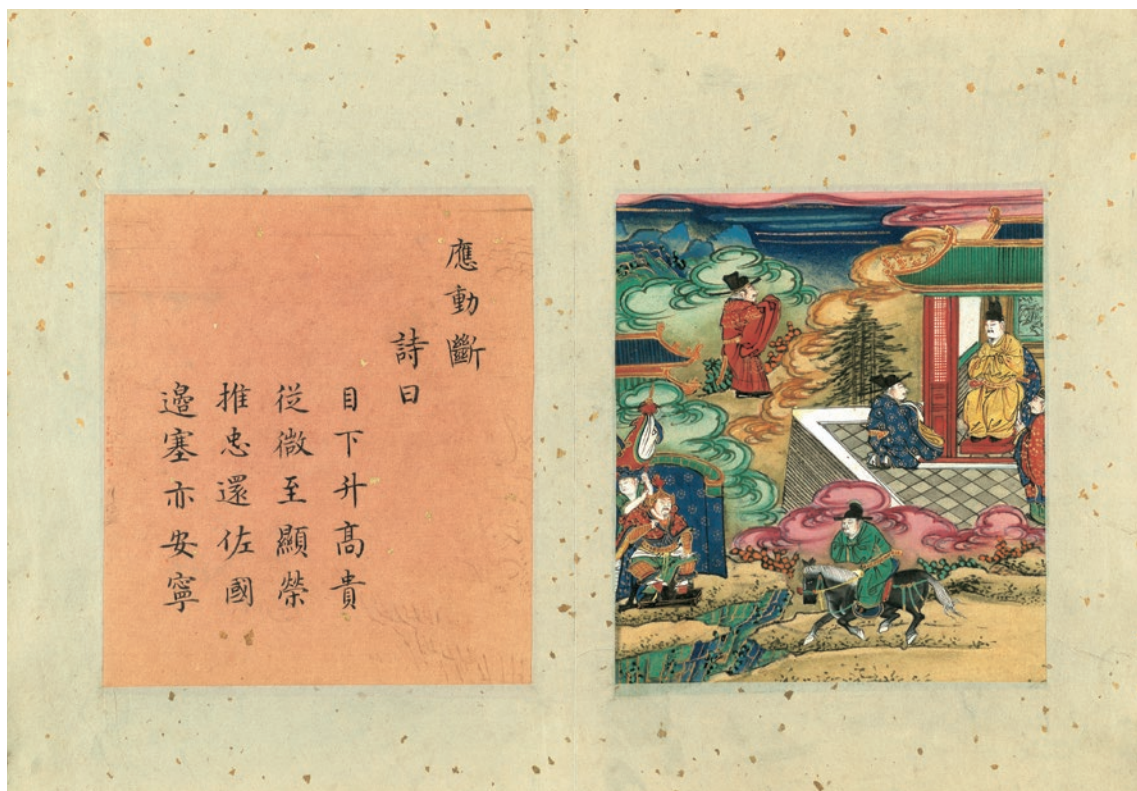 應動斷
詩曰
目下升高貴
從微至顯榮
推忠還佐國
邉塞亦安寧